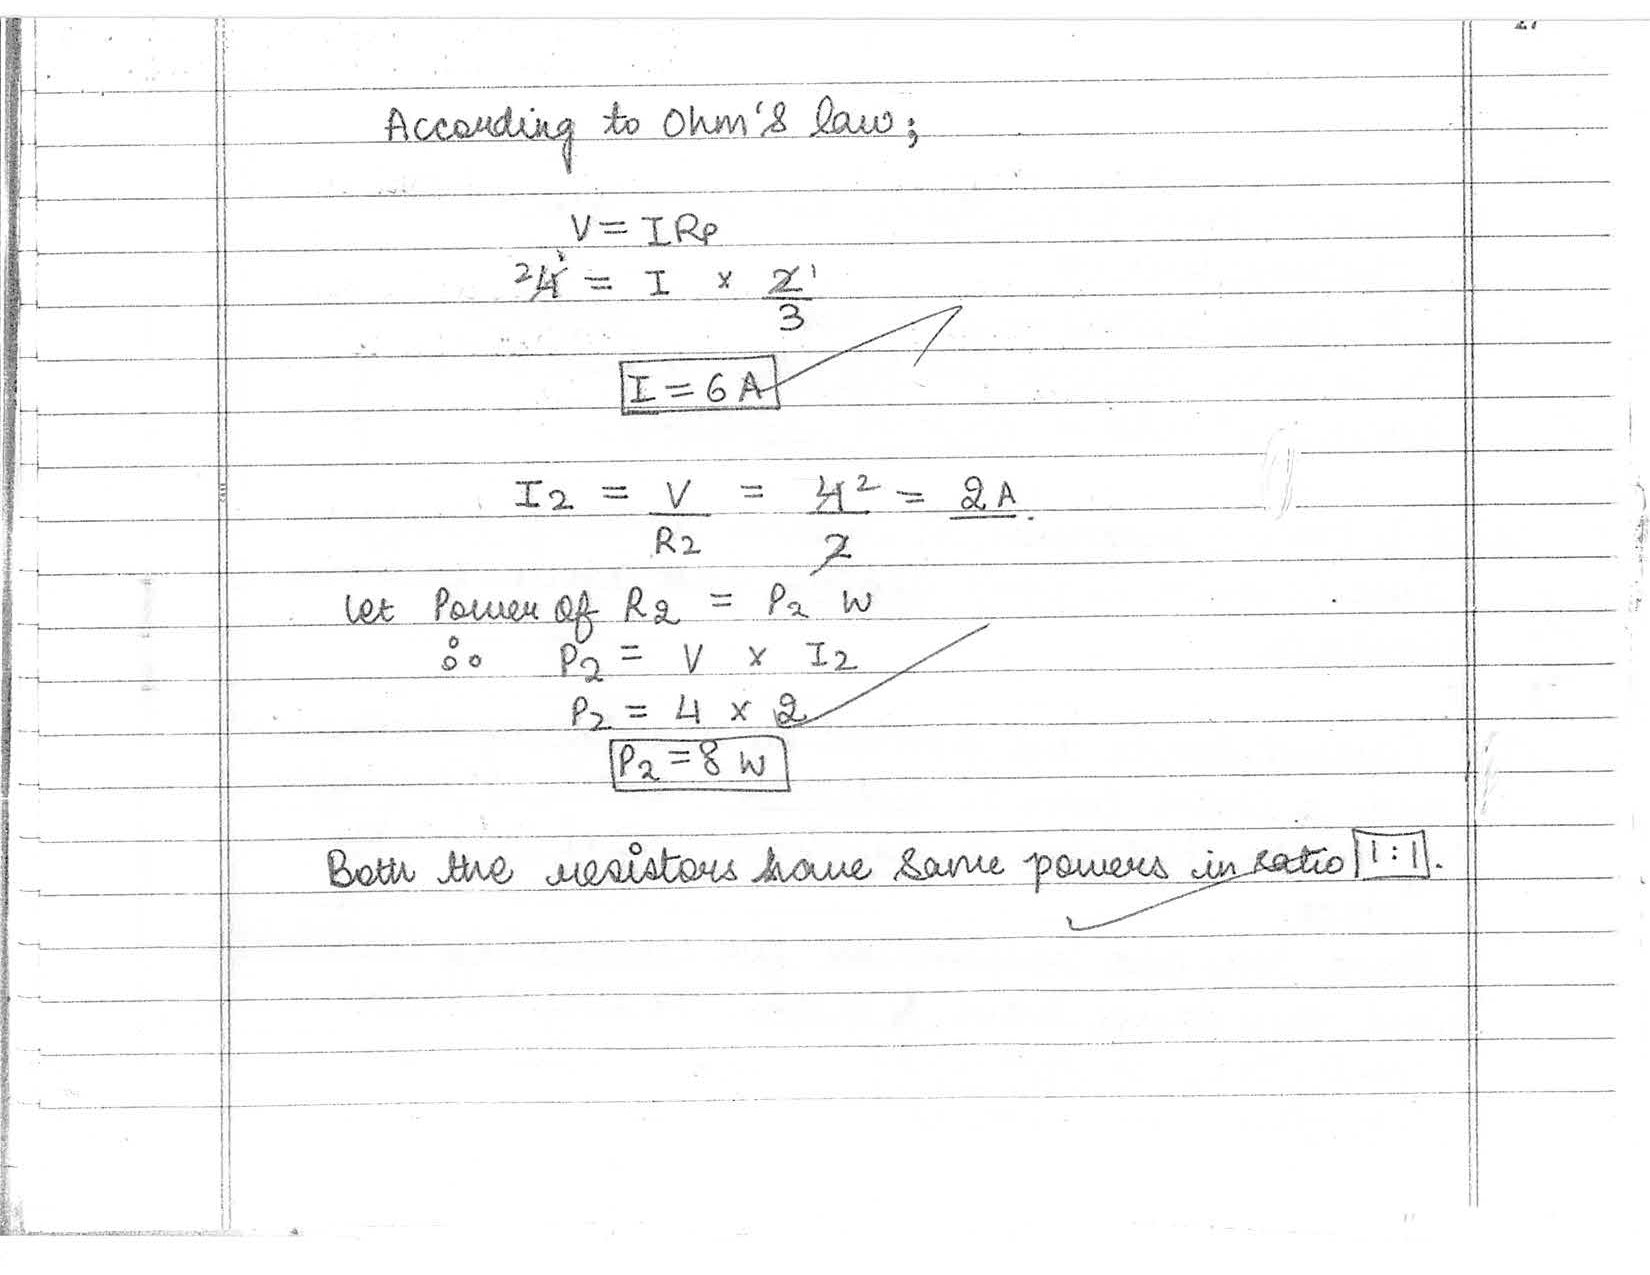 27
According to Ohm's law;
V = IRp
2 4 = I × 2 1 / 3
I = 6 A
I2 = V / R2 = 4 2 / 2 = 2 A.
let Power of R2 = P2 W
∴ P2 = V × I2
P2 = 4 × 2
P2 = 8 W
Both the resistors have same powers in ratio 1:1.